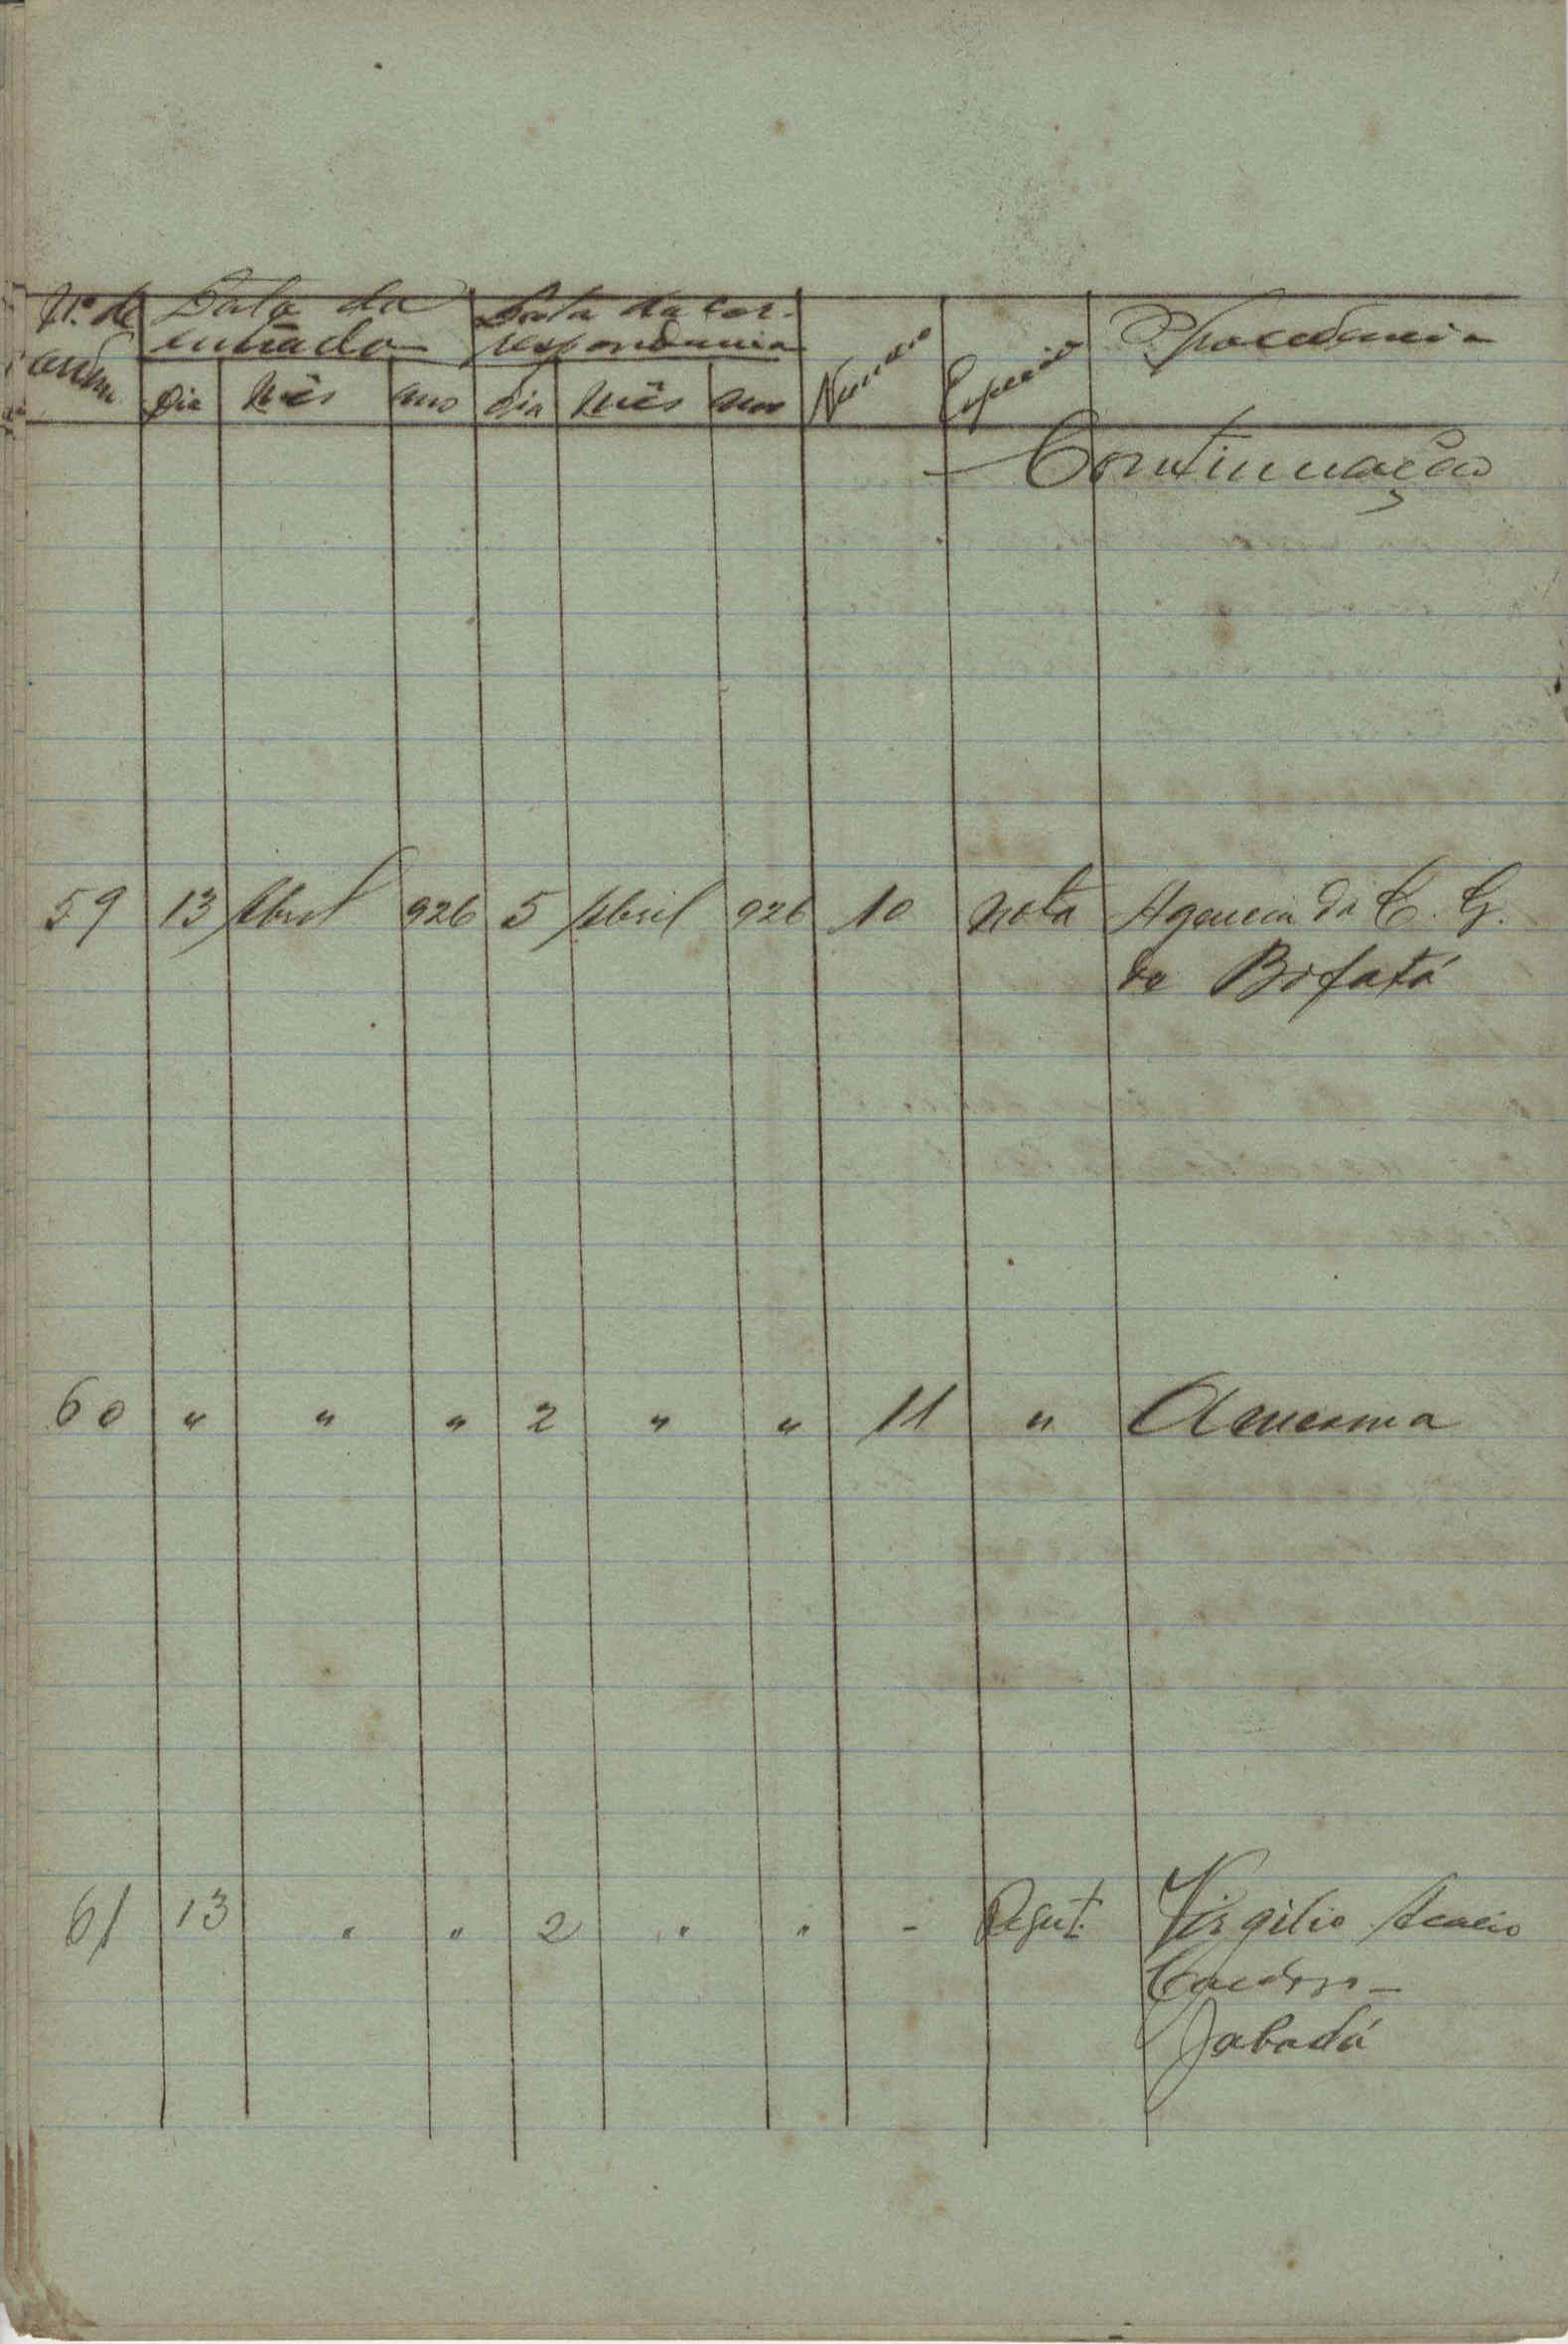 N.º de Data da Data da cor-
ordem entrada respondencia Numero Especie Procedencia
Dia Mês ano dia Mês ano
Continuação
59 13 Abril 926 5 Abril 926 10 Nota Agencia da C. G.
de Bafatá
60 " " " 2 " " 11 " A mesma
61 13 " " 2 " " - Requt. Virgilio Acacio
Cardoso -
Jabadá